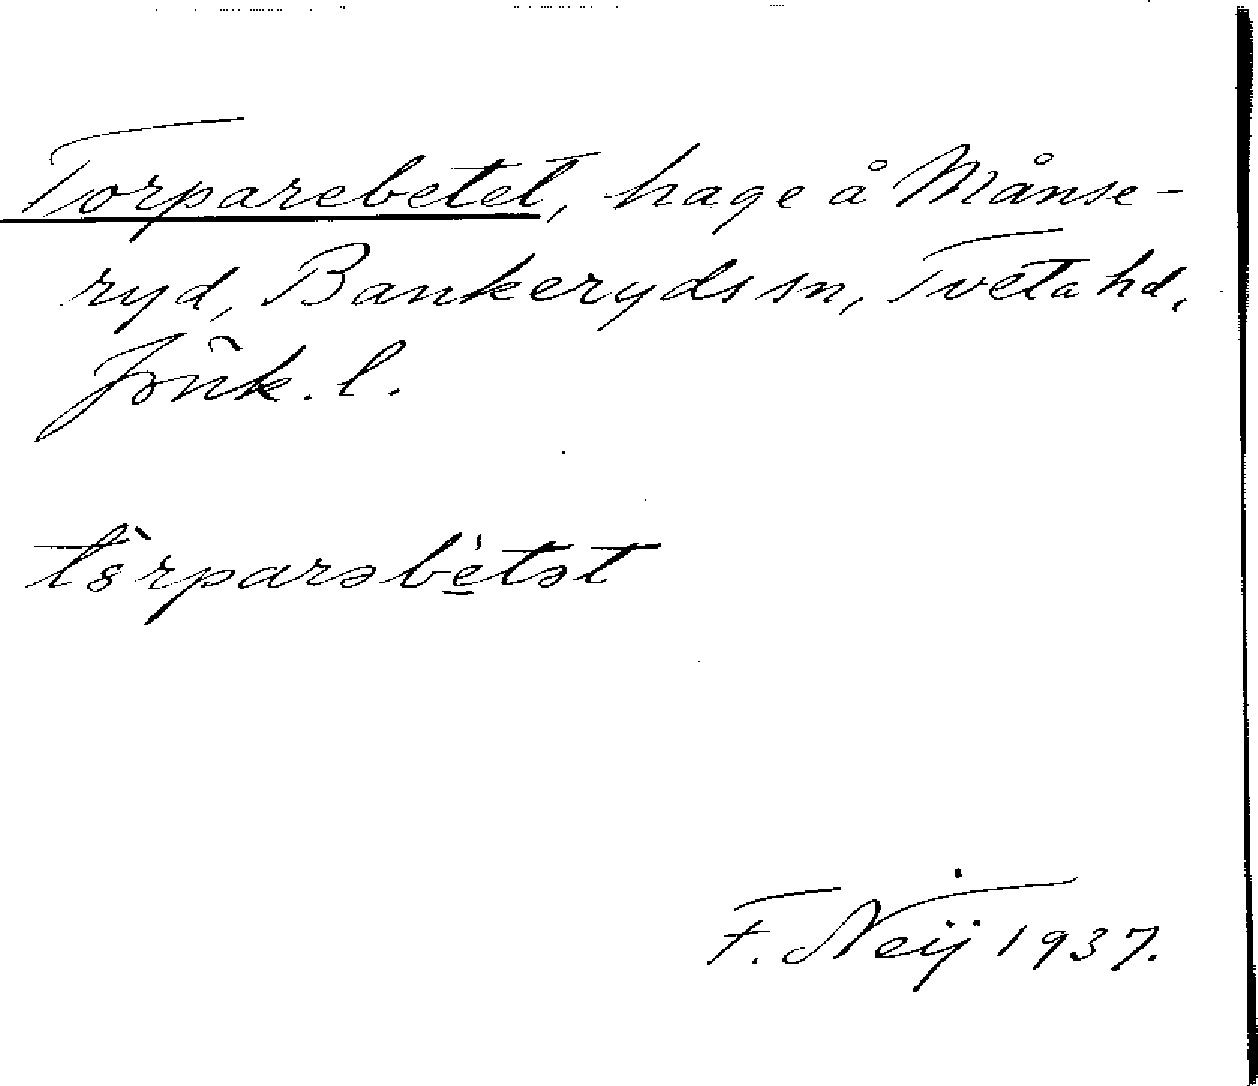 Torparebetet, hage å Månse-
ryd, Bankeryds sn, Tveta hd,
Jönk. l.
tòrparəbètət
F. Neij 1937.